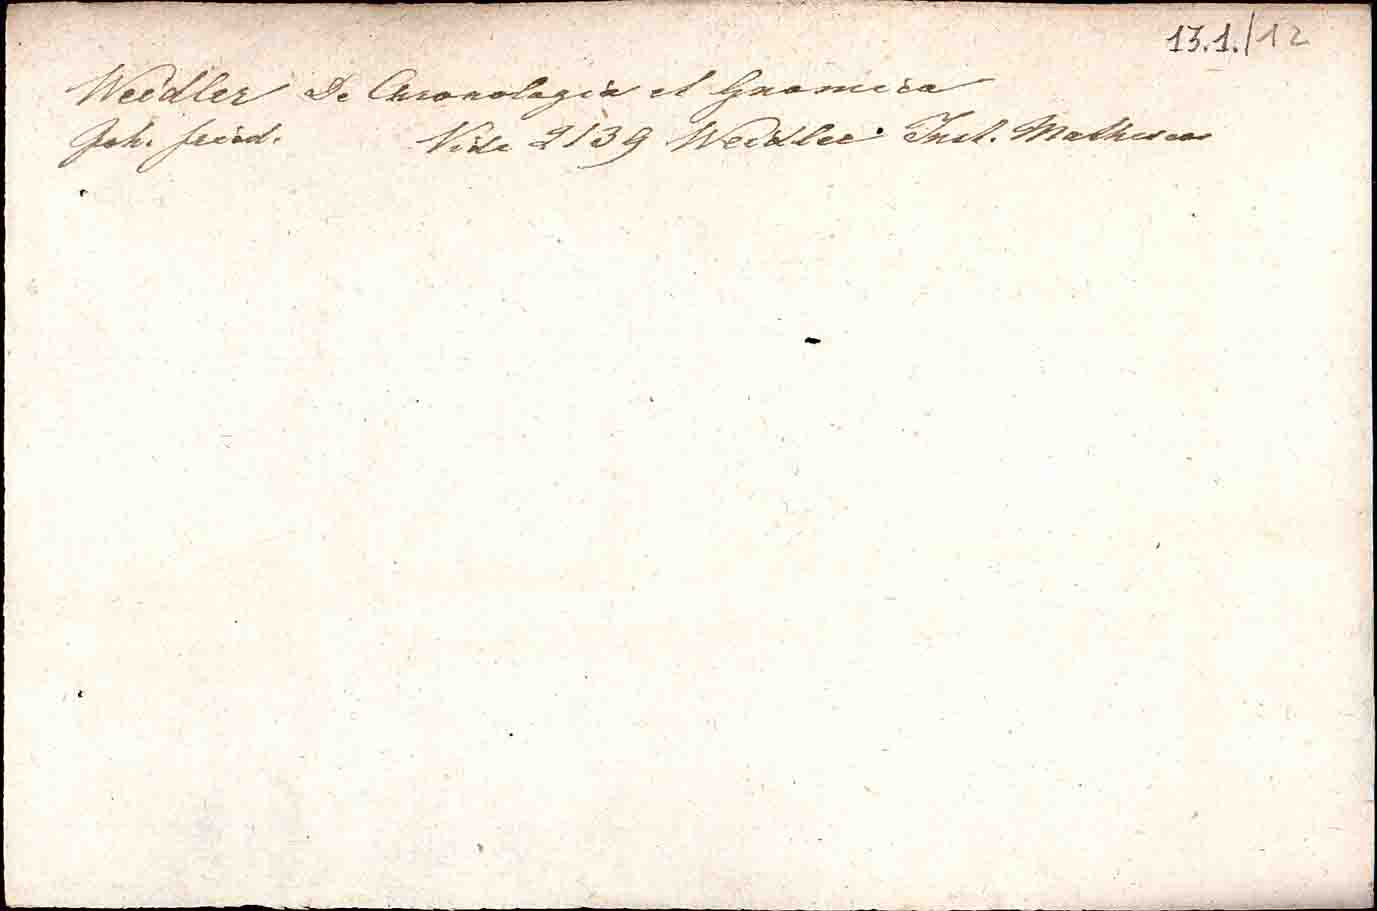 13.1./12
Weidler De Chronologia et Gnomica
Joh. fried. Vide 2139 Weidler Inst. Matheseos